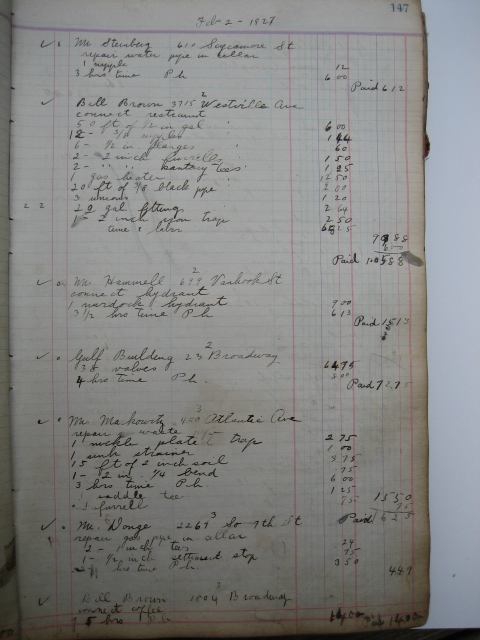 147
Feb 2 - 1927
Mr Steinberg 611 Sycamore St
repair water pipe in cellar
1 nipple 12
3 hrs time P h 6 00
Paid 6 12
Bill Brown 3715 Westville Ave
connect restraunt
50 ft of 1/2 in gal 6 00
12 - 3/8 1 44
6 - 1/2 in flanges 60
2 - 2 inch furrells 1 50
2 - " " sanitary tees 1 25
1 gas heater 12 50
20 ft of 3/8 black pipe 2 00
3 unions 1 20
22 20 gal fitting 2 64
2 inch iron trap 2 50
time & labor
Paid 105 88
Mr Hammell 699 Vanhook St
connect hydrant
1 murdock hydrant 9 00
3 1/2 hrs time P h 6 13
Paid 15 13
2
Gulf Building 23 Broadway
valves 64 75
4 hrs time P h. 8 00
Paid 72 75
3
Mr Markowitz 440 Atlantic Ave
repair waste pipe
1 nickle plated trap 2 75
1 sink strainer 1 00
15 ft of 2 inch soil 3 75
1 - 2 in 1/4 bend 75
3 hrs time P h 6 00
1 saddle tee 1 25
1 furrell 75 15 50
Paid 16 25
3
Mr Donge 2267 So 7th St
repair gas pipe in cellar
2 - 1 inch tees 24
1 - 1/2 inch settlement stop 75
hrs time P h 3 50
4 49
3
Bill Brown 1804 Broadway
connect coffee
5 hrs P h